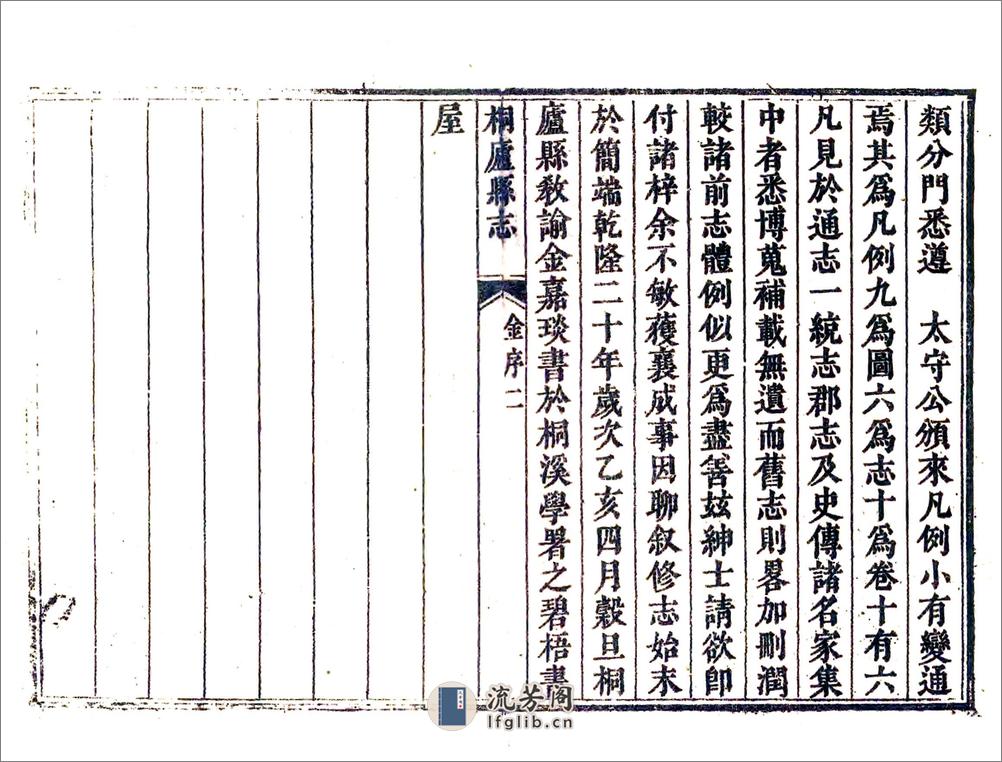 類分門悉遵　太守公頒來凡例小有變通
焉其爲凡例九爲圖六爲志十爲卷十有六
凡見於通志一統志郡志及史傳諸名家集
中者悉博蒐補載無遺而舊志則畧加刪潤
較諸前志體例似更爲盡善玆紳士請欲卽
付諸梓余不敏獲襄成事因聊叙修志始末
於簡端乾隆二十年歲次乙亥四月穀旦桐
廬縣教諭金嘉琰書於桐溪學署之碧梧書
桐廬縣志
金序二
屋
流芳阁
lfglib.cn